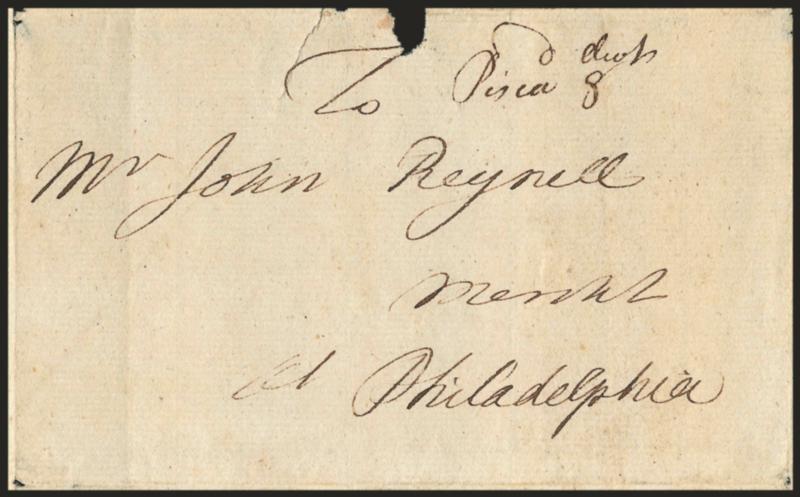 To Pisca dwt 8
Mr John Reynell
Mercht
At Philadelphia